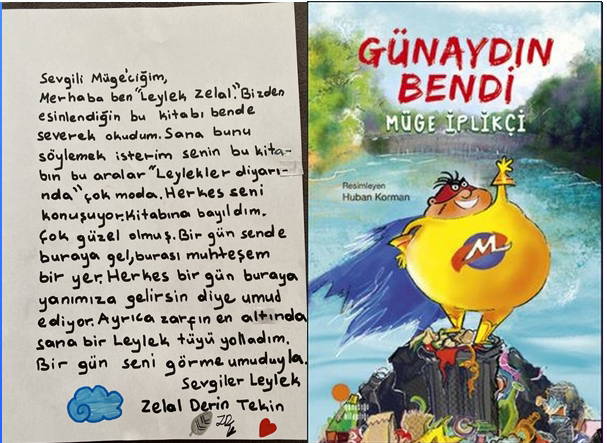 Sevgili Müge'ciğim,
Merhaba ben "Leylek Zelal." Bizden
esinlendiğin bu kitabı bende
severek okudum. Sana bunu
söylemek isterim senin bu kita-
bın bu aralar "Leylekler diyarı-
nda" çok moda. Herkes seni
konuşuyor. Kitabına bayıldım.
Çok güzel olmuş. Bir gün sende
buraya gel, burası muhteşem
bir yer. Herkes bir gün buraya
yanımıza gelirsin diye umud
ediyor. Ayrıca zarfın en altında
sana bir Leylek tüyü yolladım.
Bir gün seni görme umuduyla.
Sevgiler Leylek
Zelal Derin Tekin
GÜNAYDIN
BENDİ
MÜGE İPLİKÇİ
Resimleyen
Huban Korman
M